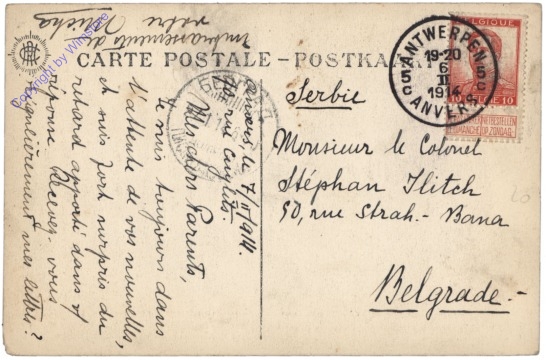 CARTE POSTALE – POSTKAART
BELGIQUE
10 10
ANTWERPEN
5C 5C
19-20
6
II
1914
ANVERS
Serbie
Monsieur le Colonel
Stéphan Ilitch
50, rue Strah.- Bana
Belgrade.-
Anvers le 7/II/914.
Mes chers Parents,
Je suis toujours dans
l'attente de vos nouvelles,
et suis fort surpris du
retard apporté dans v/
réponse. Recevez-vous
régulièrement mes lettres?
Embrassements de
votre
Copyright by